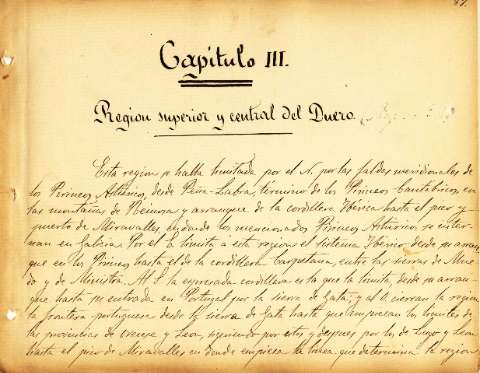 Capítulo III.
Region superior y central del Duero.
Esta region se halla limitada por el N. por las faldas meridionales de
los Pirineos Astúricos, desde Peña-Labra, término de los Pirineos Cantábricos, en
las montañas de Reinosa y arranque de la cordillera Ibérica hasta el pico y
puerto de Miravalles en donde los mencionados Pirineos Astúricos se inter-
nan en Galicia. Por el E. limita a esta region el sistema Ibérico, desde su arran-
que en los Pirineos hasta el de la cordillera Carpetana, entre las sierras de Mue-
do y de Ministra. Al S. la expresada cordillera es la que la limita, desde su arran-
que hasta su entrada en Portugal por la sierra de Gata; y al O. cierran la region
la frontera portuguesa desde la sierra de Gata hasta que empiezan los límites de
las provincias de Orense y Leon, siguiendo por estos y despues por los de Lugo y Leon
hasta el pico de Miravalles en donde empieza la línea que determina la region